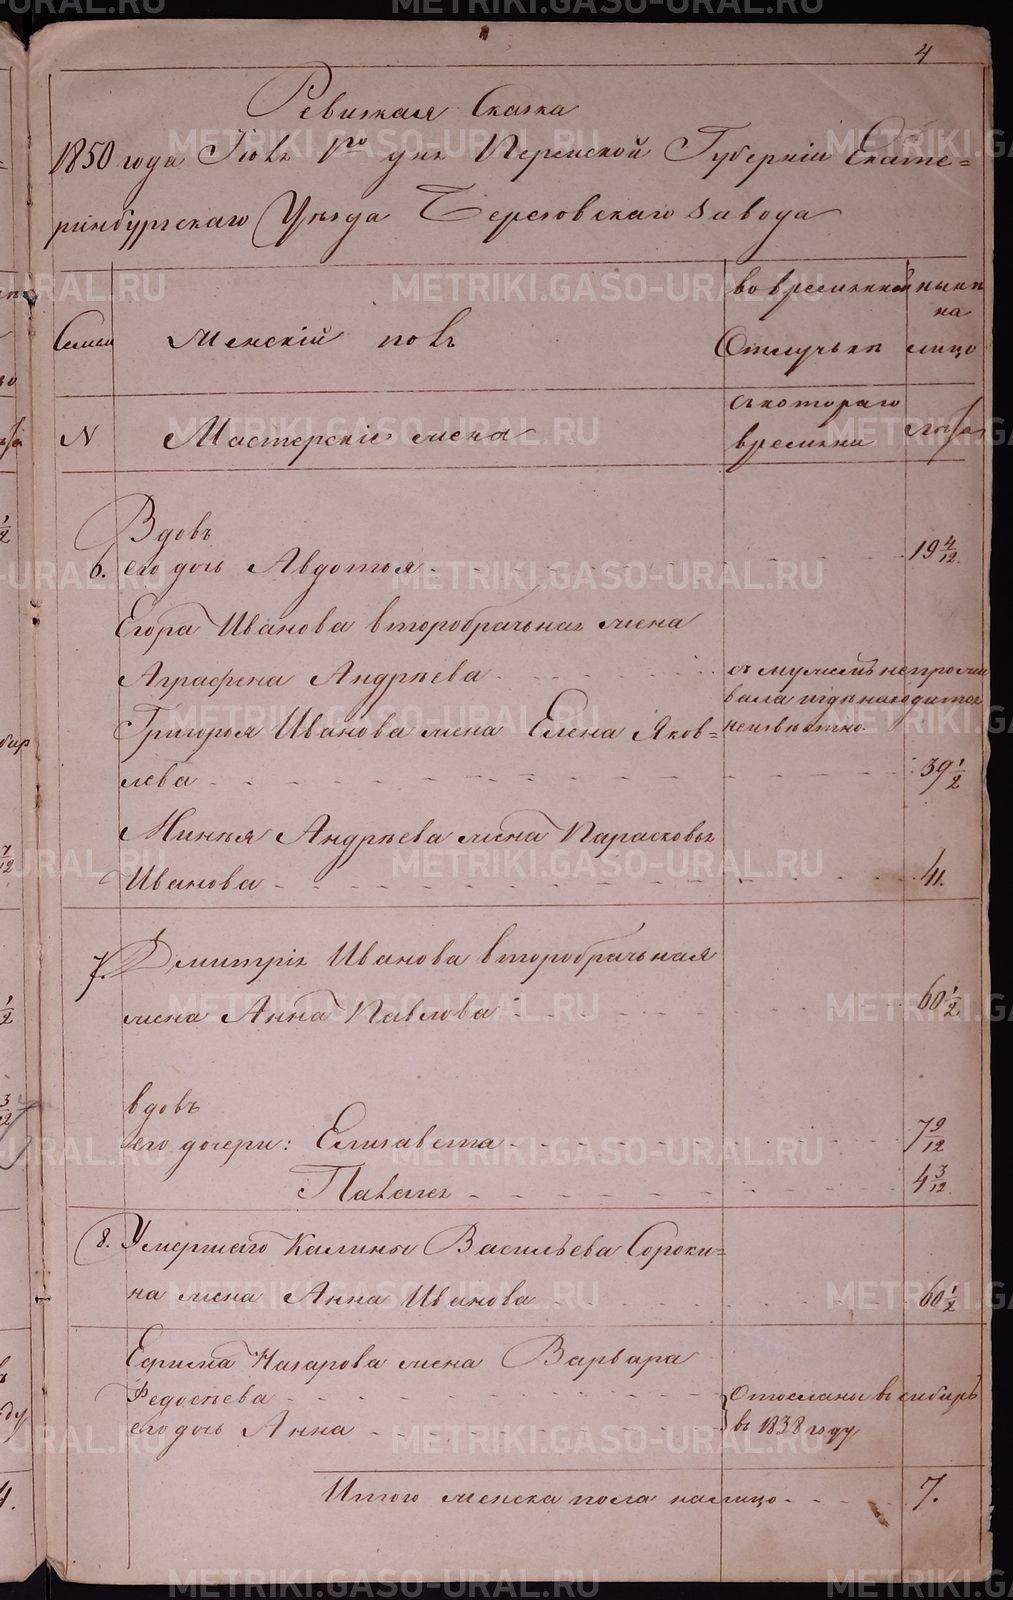 4
Ревизкая Сказка
1850 года Іюля 1го дня Пермской Губерніи Екате-
ринбургскаго Уѣзда Березовскаго Завода
Семьи
Женскій полъ
во временной
Отлучьки
ныни
на
лицо
N
Мастерскіе жена
съкотораго
времяни
лѣта
Вдовъ
6. его дочь Авдотья
19 4/12
Егора Иванова второбрачьная жена
Аграфена Андрѣева
съ мужемъ непрожи
вала игдѣ находится
неизвѣстно.
Григорья Иванова жена Елена Яков-
лева
39 1/2
Минья Андрѣева жена Парасковья
Иванова
41.
7. Дмитрія Иванова второбрачьная
жена Анна Павлова
60 1/2
вдовъ
его дочери: Елизавета
7 9/12
Павла
4 3/12
8. Умершаго Калины Васильева Сороки-
на жена Анна Иванова
60 1/2
Ефима Назарова жена Варвара
Федосѣева
его дочь Анна
Отосланы въ сибирь
въ 1838 году
Итого женска пола налицо
7.
METRIKI.GASO-URAL.RU